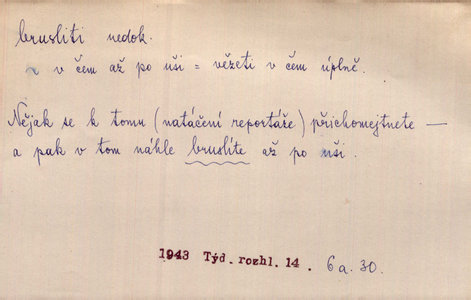 brusliti nedok.
~ v čem až po uši = vězeti v čem úplně.
Nějak se k tomu (natáčení reportáže) přichomejtnete —
a pak v tom náhle bruslíte až po uši.
1943 Týd. rozhl. 14. 6 a. 30.